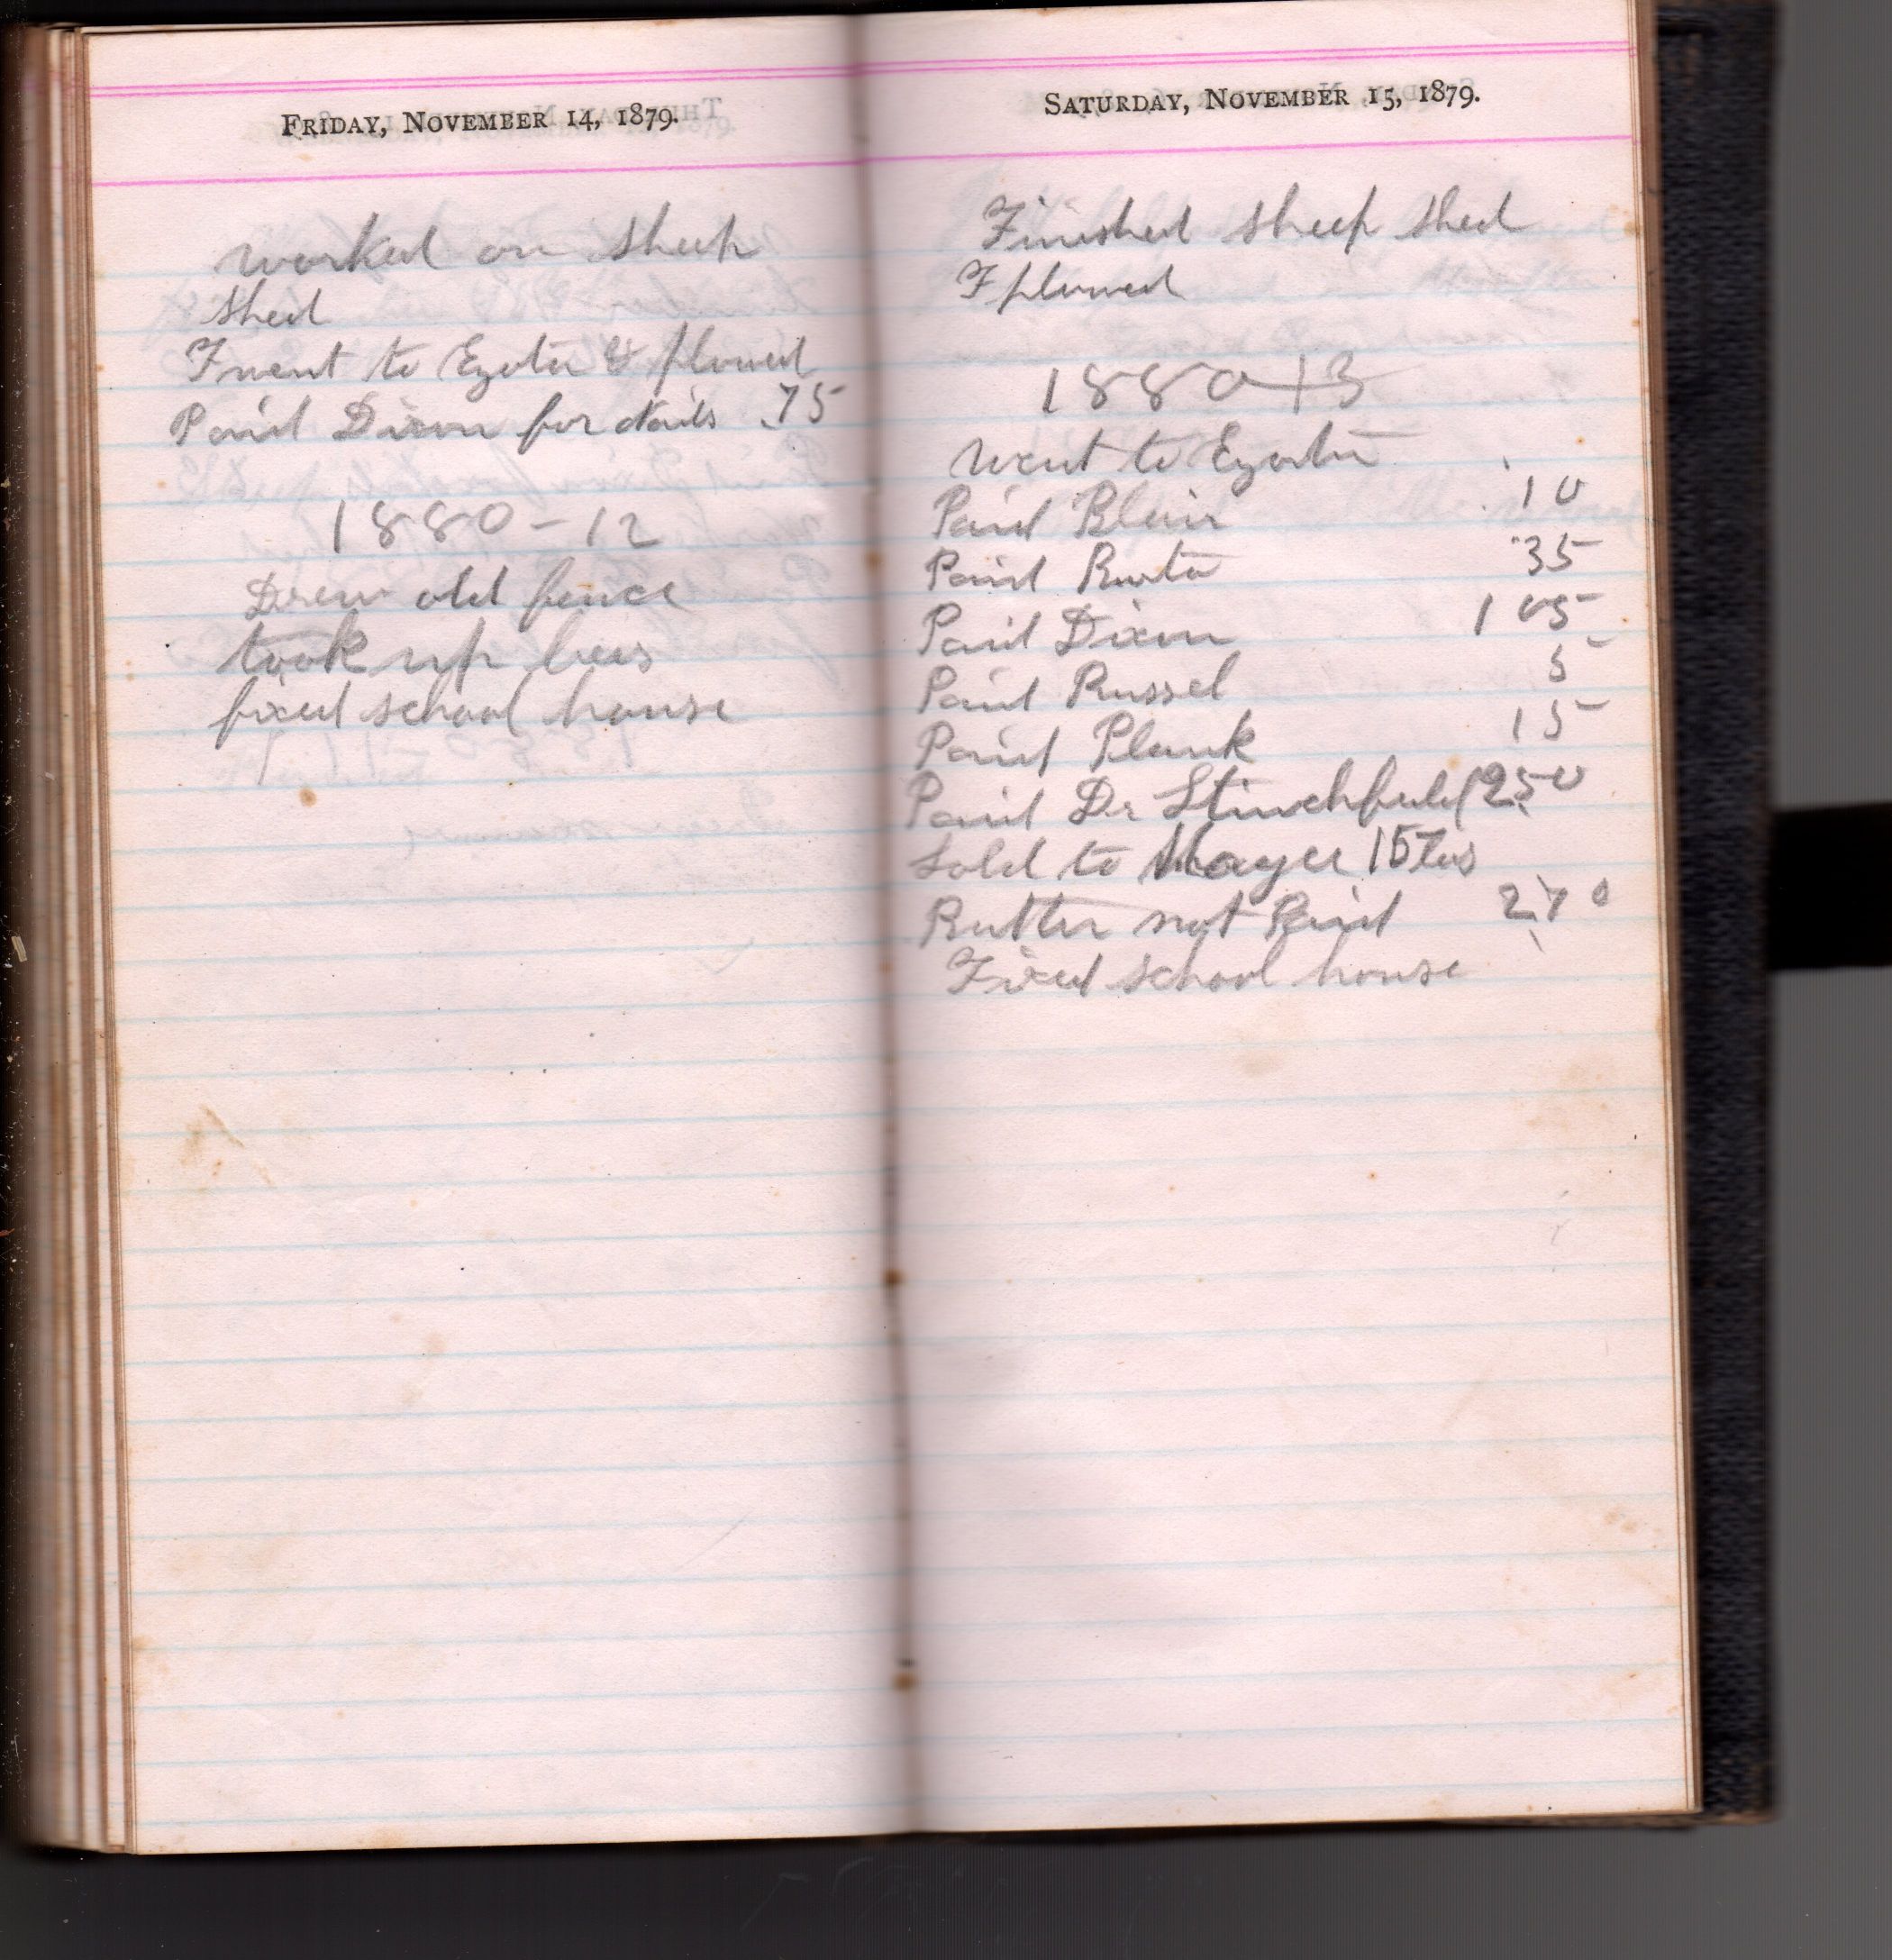 FRIDAY, NOVEMBER 14, 1879.
Worked on Sheep
Shed
F went to Eyota & plowed
Paid Dixon for Nails .75
1880-12
Drew old fence
took up bees
fixed school house
SATURDAY, NOVEMBER 15, 1879.
Finished sheep shed
F plowed
1880 13
Went to Eyota
Paid Blair .10
Paid 35
Paid Dixon 1 05
Paid Russel 5
Paid Plank 15
Paid Dr Stinchfield 250
Sold to 15 lbs
Butter not Paid 2.70
Fixed school house